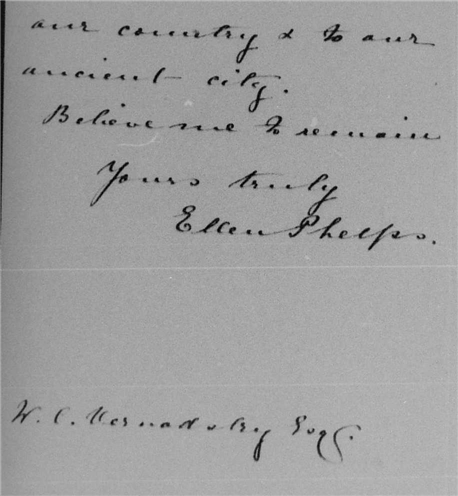 our country & to our
ancient city.
Believe me to remain
Yours truly
Ellen Phelps.
W. C. Vernadsky Esq.